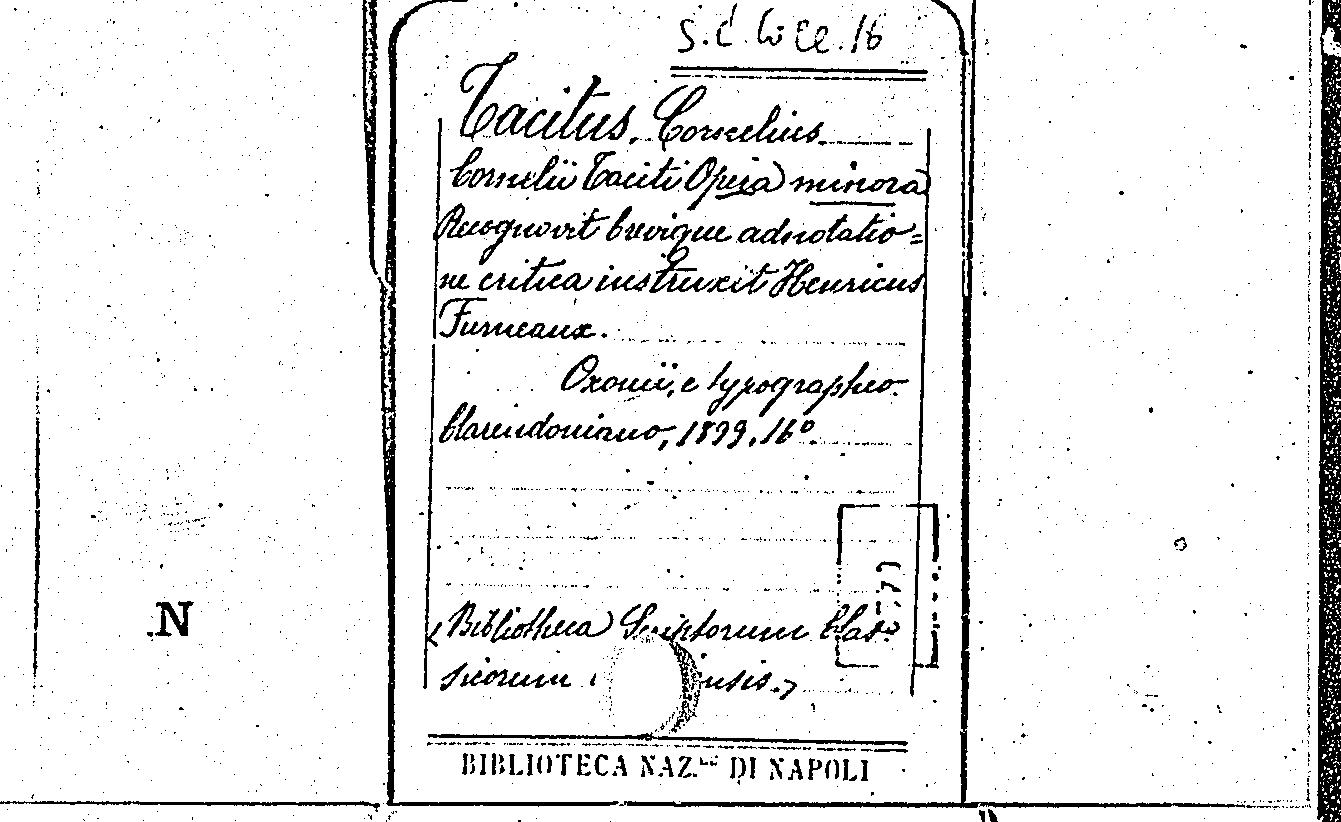 Tacitus, Cornelius
Cornelii Taciti Opera minora
Recognovit brevique adnotatio=
ne critica instruxit Henricus
Furneaux.
Oxonii, e typographeo
Clarendoniano, 1899, 16º
N
(Bibliotheca Scriptorum Clas-
sicorum nsis.)
BIBLIOTECA NAZ.LE DI NAPOLI